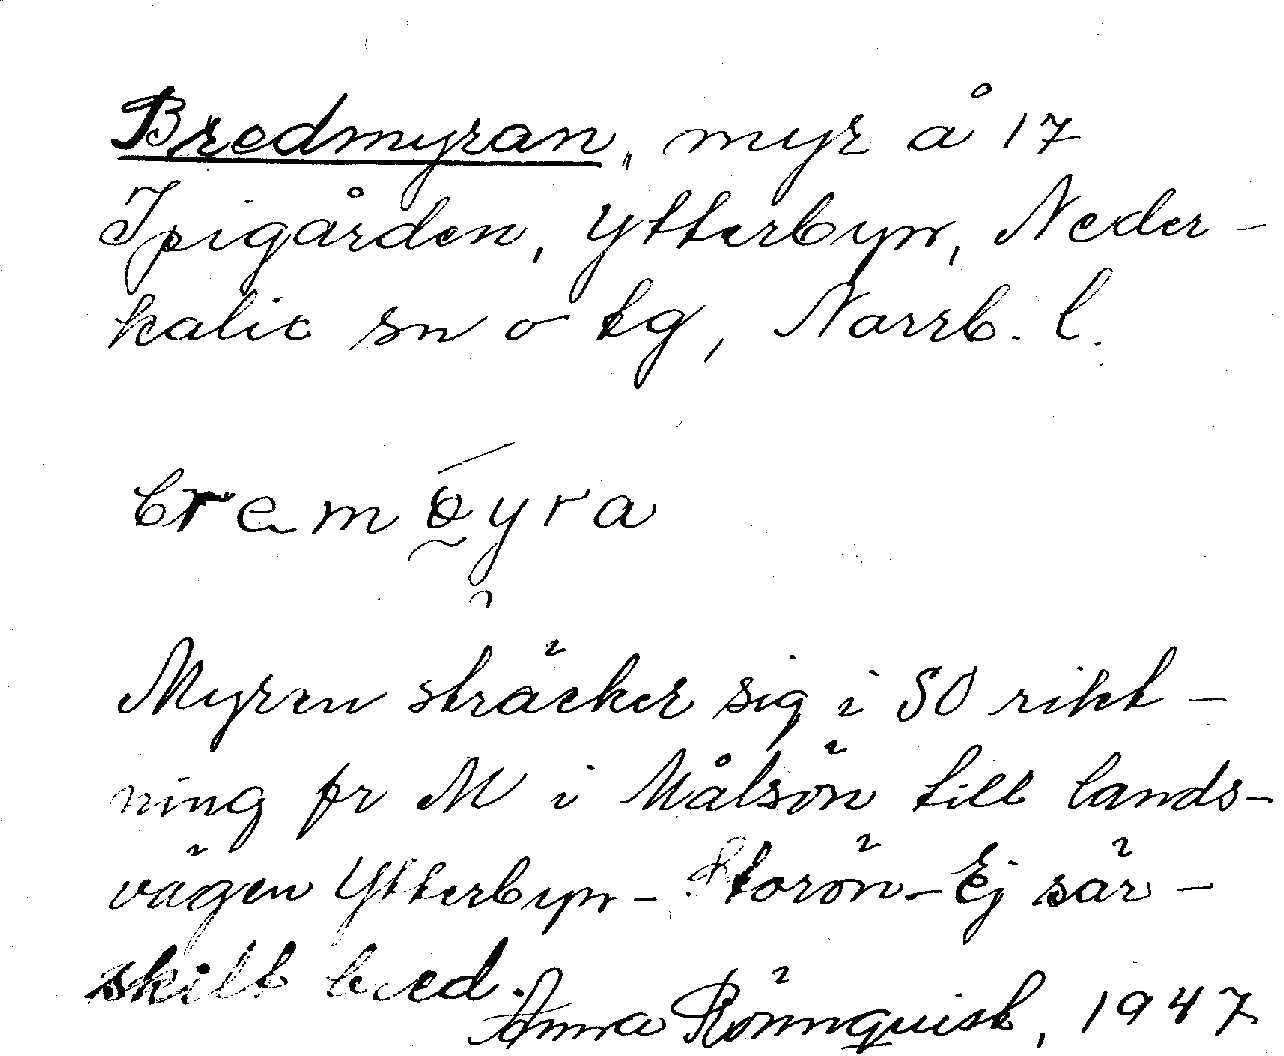 Bredmyran, myr å 17
Spigården, Ytterbyn, Neder-
kalix sn o tg, Norrb. l.
Myren sträcker sig i SO rikt-
ning fr M i Målsön till lands-
vägen Ytterbyn - Storön - Ej sär-
skilt bred.
Anna Rönnquist, 1947